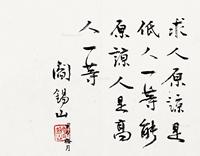 求人原諒是
低人一等能
原諒人是高
人一等
閻錫山